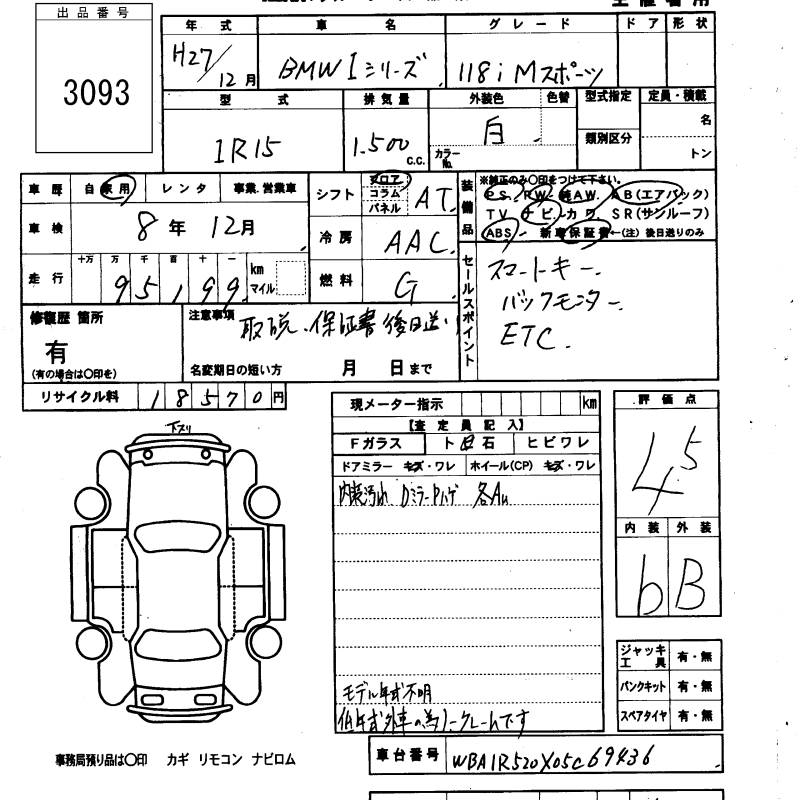 出品番号
3093
年式 車名 グレード ドア 形状
H27/12月 BMW 1シリーズ 118i Mスポーツ
型式 排気量 外装色 色替 型式指定 定員・積載
1R15 1.500 c.c. 白 カラーNo. 類別区分 名
トン
車歴 自家用 レンタ 事業.営業車
車検 8年 12月
走行 十万 万 千 百 十 一
95199 km マイル
シフト フロア コラム パネル AT
冷房 AAC
燃料 G
装備品
※純正のみ〇印をつけて下さい。
PS. PW. 純AW. AB(エアバック)
TV ナビ.カワ. SR(サンルーフ)
ABS 新車保証書←(注) 後日送りのみ
セールスポイント
スマートキー.
バックモニター.
ETC.
修復歴 箇所
有
(有の場合は〇印を)
注意事項
取説.保証書 後日送り
名変期日の短い方 月 日まで
リサイクル料 18570円
現メーター指示 km
【査定員記入】
Fガラス ト飛石 ヒビワレ
ドアミラー キズ・ワレ ホイール(CP) キズ・ワレ
内装汚れ DミラーPハゲ 各AU
モデル年式不明
低年式外車の為ノークレームです
評価点
4.5
内装 外装
b B
ジャッキ工具 有・無
パンクキット 有・無
スペアタイヤ 有・無
下スリ
事務局預り品は〇印 カギ リモコン ナビロム
車台番号 WBA1R520X05C69436